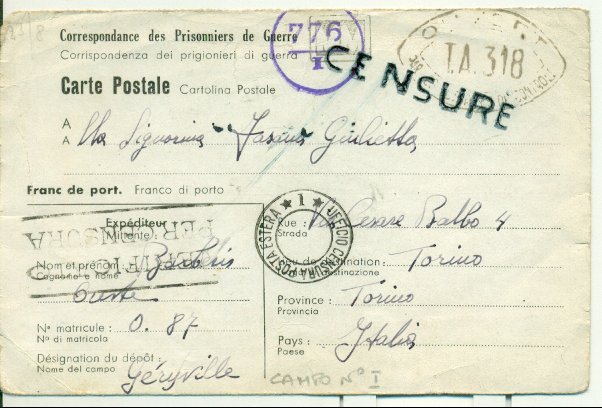 Correspondance des Prisonniers de Guerre
Corrispondenza dei prigionieri di guerra
776
I
CENSURE
I.A. 318
Carte Postale Cartolina Postale
A
A Alla Signorina Giulietta
Franc de port. Franco di porto
VERIFICATO
PER CENSURA
★ 1 ★ UFFICIO CENSURA POSTA ESTERA
Expéditeur
Mittente
Nom et prénom
Cognome e nome
Nº matricule : O. 87
Nº di matricola
Désignation du dépôt :
Nome del campo Géryville
Rue : Via Cesare Balbo 4
Strada
Lieu de destination : Torino
Destinazione
Province : Torino
Provincia
Pays : Italia
Paese
CAMPO Nº I